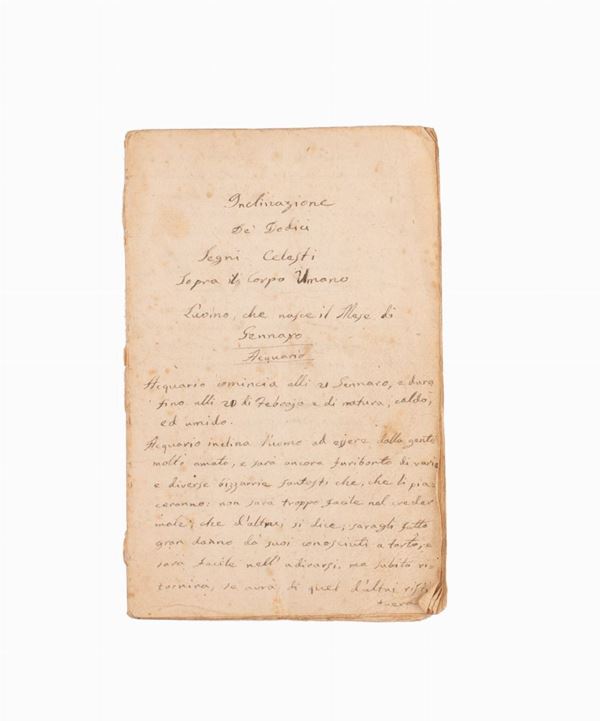 Inclinazione
De' Dodici
Segni Celesti
Sopra il Corpo Umano
Luoino, che nasce il Mese di
Gennaro
Acquario
Acquario comincia alli 21 Gennaro, e dura
fino alli 20 di Febrajo e di natura, caldo,
ed umido.
Acquario inclina l'uomo ad essere dalla gente
molto amato, e sarà ancora furibonto di varie
e diverse bizzarrie fantesti che, che li pia=
ceranno: non sarà troppo facile nel creder
male, che d'altrui si dice; saragli fatto
gran danno da suoi conosciuti a torto, e
sarà facile nell'adirarsi, ma subito ri=
tornirà, se avrà di quel d'altrui risti
tuerà